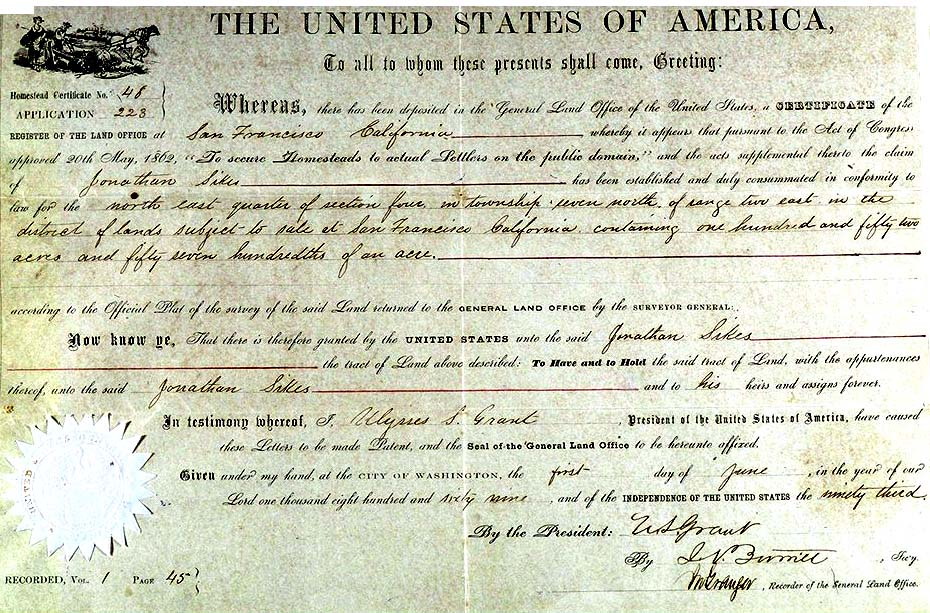 THE UNITED STATES OF AMERICA,
To all to whom these presents shall come, Greeting:
Homestead Certificate No. 48
APPLICATION 223
Whereas, there has been deposited in the General Land Office of the United States, a CERTIFICATE of the
REGISTER OF THE LAND OFFICE at San Francisco California whereby it appears that pursuant to the Act of Congress
approved 20th May, 1862, "To secure Homesteads to actual Settlers on the public domain," and the acts supplemental thereto the claim
of Jonathan Sikes has been established and duly consummated in conformity to
law for the north east quarter of section four, in township seven north, of range two east in the
district of lands subject to sale at San Francisco California containing one hundred and fifty two
acres and fifty seven hundredths of an acre.
according to the Official Plat of the survey of the said Land returned to the GENERAL LAND OFFICE by the SURVEYOR GENERAL:
Now know ye, That there is therefore granted by the UNITED STATES unto the said Jonathan Sikes
the tract of Land above described: To Have and to Hold the said tract of Land, with the appurtenances
thereof, unto the said Jonathan Sikes and to his heirs and assigns forever.
In testimony whereof, I, Ulysses S. Grant, President of the United States of America, have caused
these Letters to be made Patent, and the Seal of the General Land Office to be hereunto affixed.
Given under my hand, at the CITY OF WASHINGTON, the first day of June, in the year of our
Lord one thousand eight hundred and sixty nine, and of the INDEPENDENCE OF THE UNITED STATES the ninety third.
By the President: U.S. Grant
By , Secy.
RECORDED, VOL. 1 PAGE 45
Granger, Recorder of the General Land Office.
UNITED